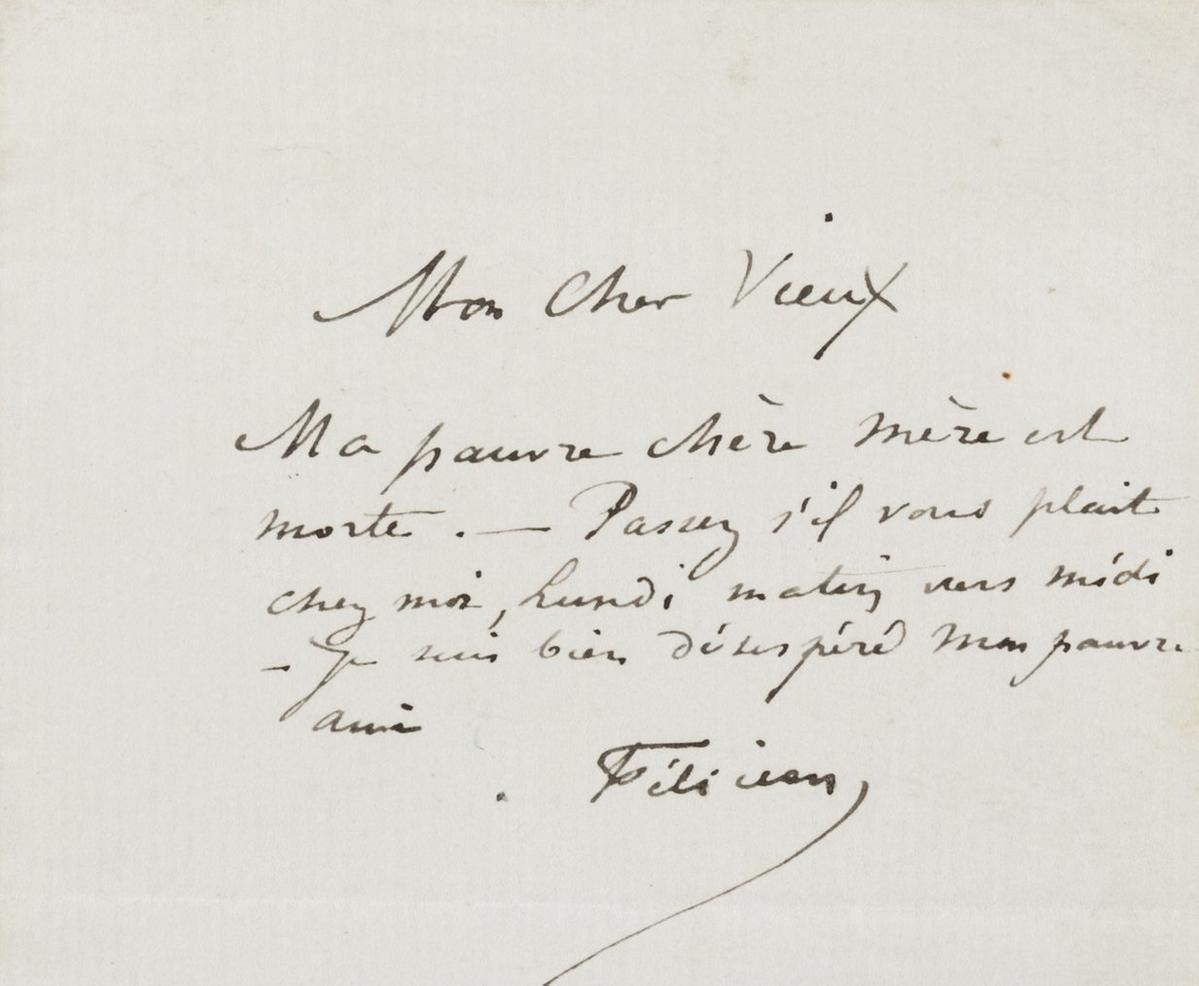 Mon Cher Vieux
Ma pauvre chère mère est
morte. — Passez s'il vous plait
chez moi, Lundi matin vers midi
– Je suis bien désespéré Mon pauvre
ami
Félicien